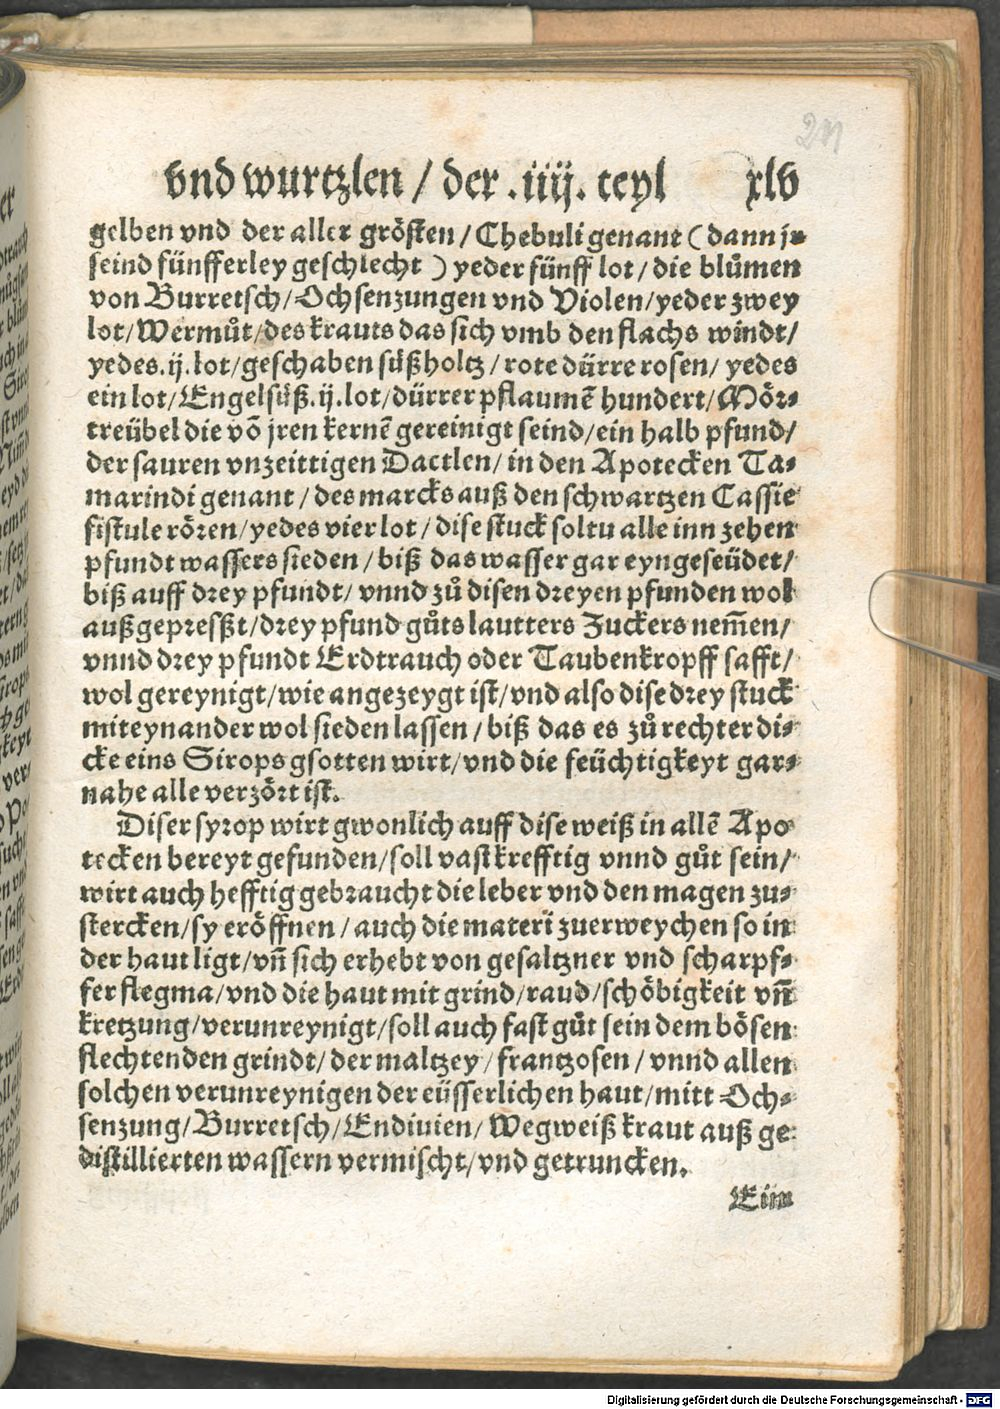 vnd wurtzlen / der .iiij. teyl xlv
gelben vnd der aller grösten / Chebuli genant ( dann je
seind fünfferley geschlecht ) yeder fünff lot / die blůmen
von Burretsch / Ochsenzungen vnd Violen / yeder zwey
lot / Wermůt / des krauts das sich vmb den flachs windt /
yedes .ij. lot / geschaben süßholtz / rote dürre rosen / yedes
ein lot / Engelsüß .ij. lot / dürrer pflaumē hundert / Mör⸗
treübel die vō jren kernē gereinigt seind / ein halb pfund /
der sauren vnzeittigen Dactlen / in den Apotecken Ta⸗
marindi genant / des marcks auß den schwartzen Cassie
fistule rören / yedes vier lot / dise stuck soltu alle inn zehen
pfundt wassers sieden / biß das wasser gar eyngeseüdet /
biß auff drey pfundt / vnnd zů disen dreyen pfunden wol
außgepreßt / drey pfund gůts lautters Zuckers nem̄en /
vnnd drey pfundt Erdtrauch oder Taubenkropff safft /
wol gereynigt / wie angezeygt ist / vnd also dise drey stuck
miteynander wol sieden lassen / biß das es zů rechter di⸗
cke eins Sirops gsotten wirt / vnd die feüchtigkeyt gar⸗
nahe alle verzört ist.
Diser syrop wirt gwonlich auff dise weiß in allē Apo
tecken bereyt gefunden / soll vast krefftig vnnd gůt sein /
wirt auch hefftig gebraucht die leber vnd den magen zu⸗
stercken / sy eröffnen / auch die materi zuerweychen so in
der haut ligt / vn̄ sich erhebt von gesaltzner vnd scharpf⸗
fer flegma / vnd die haut mit grind / raud / schöbigkeit vn̄
kretzung / verunreynigt / soll auch fast gůt sein dem bösen
flechtenden grindt / der maltzey / frantzosen / vnnd allen
solchen verunreynigen der eüsserlichen haut / mitt Och⸗
senzung / Burretsch / Endiuien / Wegweiß kraut auß ge
distillierten wassern vermischt / vnd getruncken.
Eim
Digitalisierung gefördert durch die Deutsche Forschungsgemeinschaft - DFG